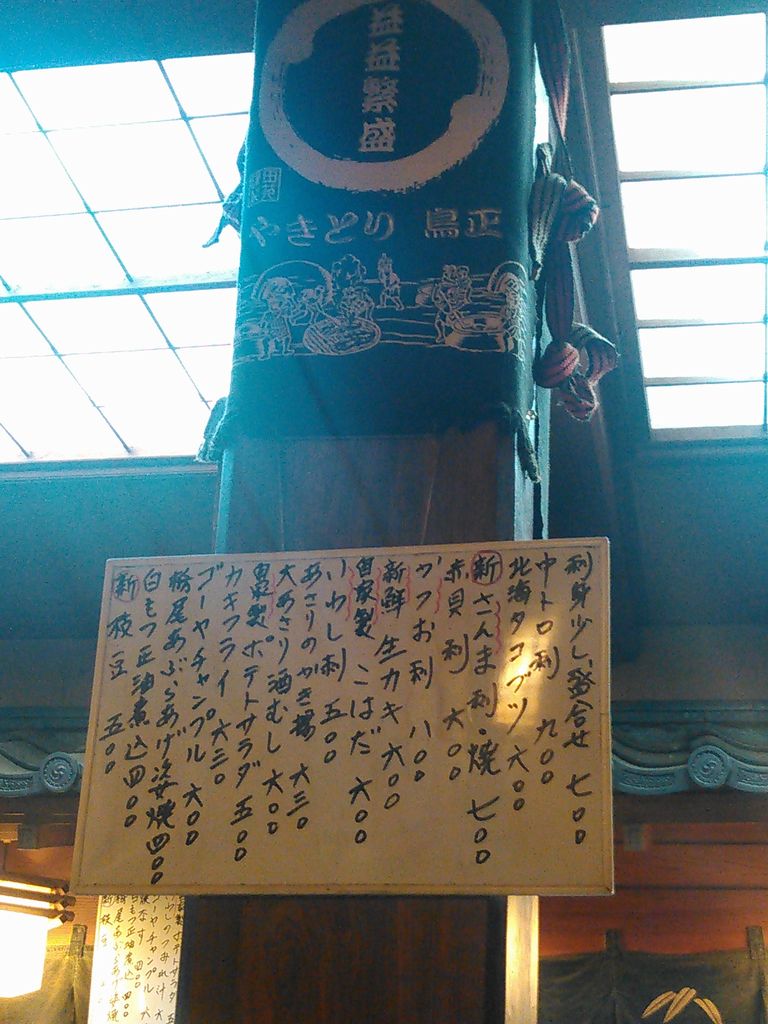 益益繁盛
やきとり 鳥正
刺身少し盛合せ 七〇〇
中トロ刺 九〇〇
北海タコブツ 六〇〇
新 さんま刺・焼 七〇〇
赤貝刺 六〇〇
かつお刺 八〇〇
新鮮 生カキ 六〇〇
自家製 こはだ 六〇〇
いわし刺 五〇〇
あさりのかき揚 六三〇
大あさり酒むし 六〇〇
自家製 ポテトサラダ 五〇〇
カキフライ 六三〇
ゴーヤチャンプル 六〇〇
栃尾あぶらあげ姿焼 四〇〇
白もつ正油煮込 四〇〇
新 枝豆 五〇〇